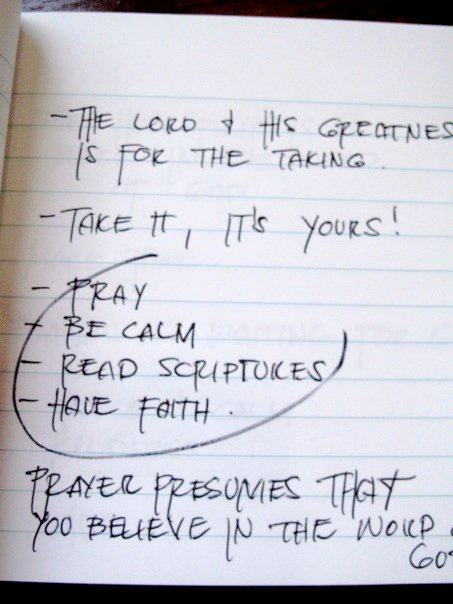 - THE LORD & HIS GREATNES
IS FOR THE TAKING.
- TAKE IT, IT'S YOURS!
- PRAY
- BE CALM
- READ SCRIPTURES
- HAVE FAITH.
PRAYER PRESUMES THAT
YOU BELIEVE IN THE WORD
GO